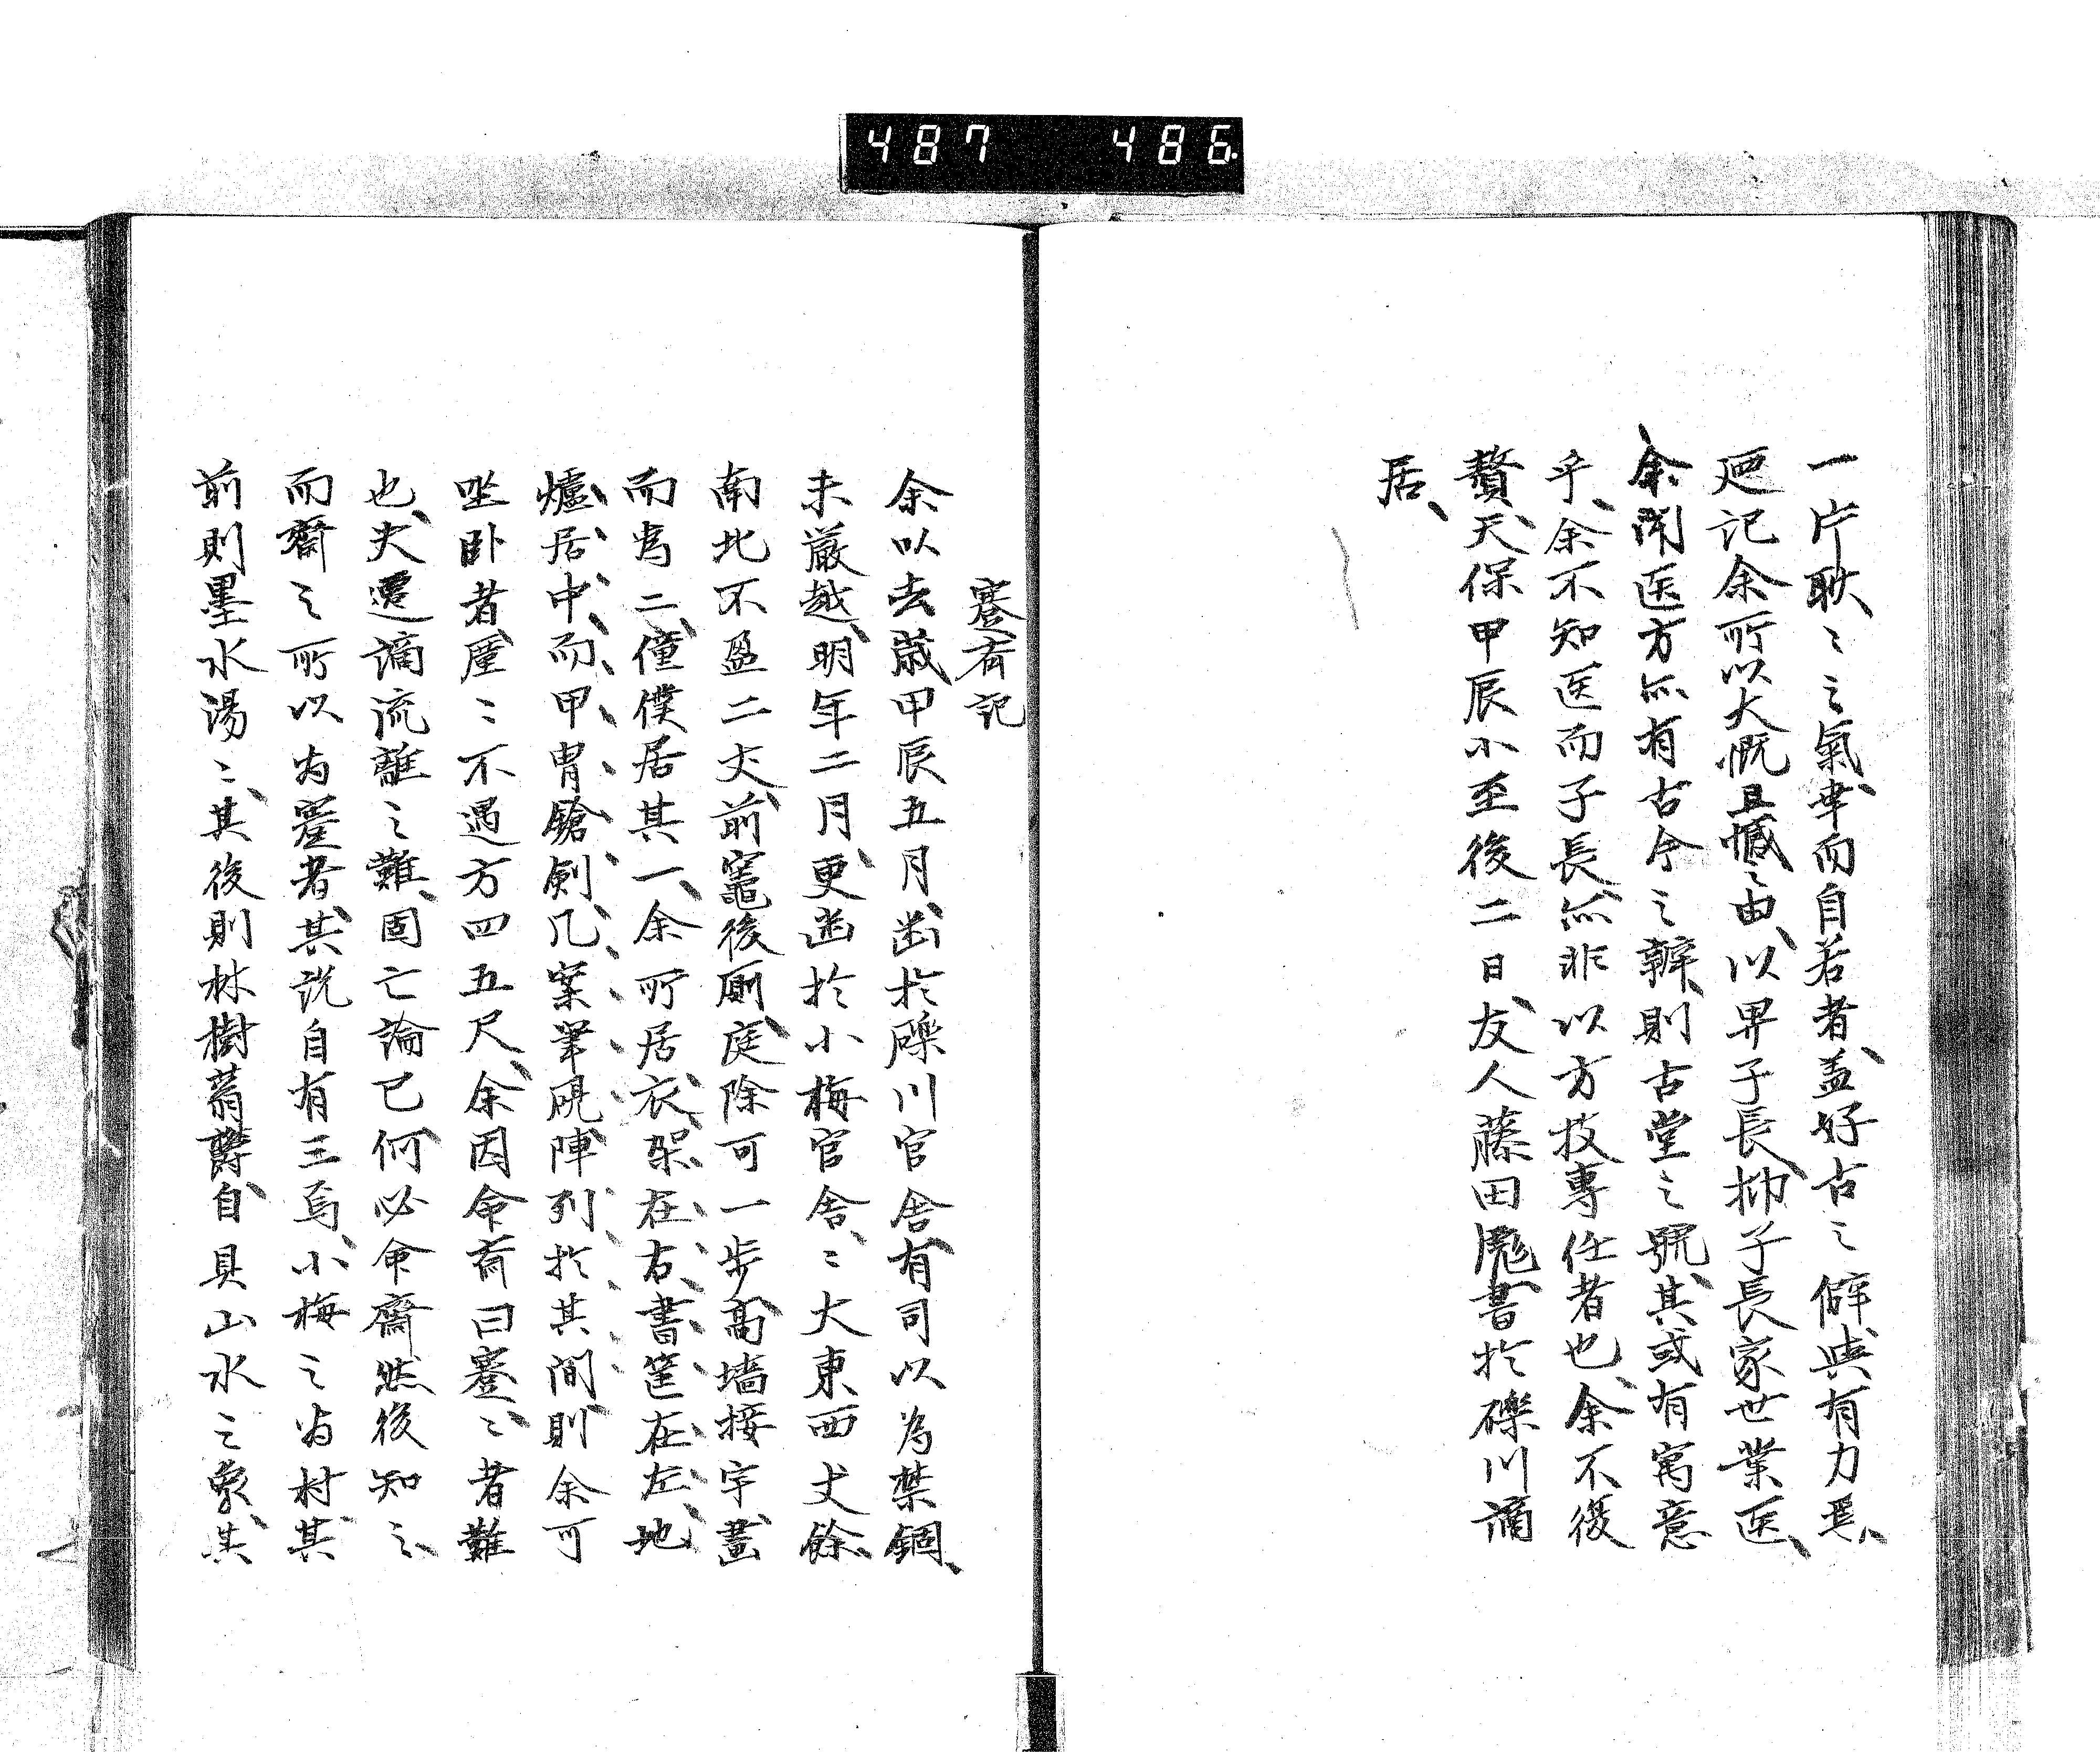 487 486
一片耿〻之氣、幸而自若者、盖好古之僻與有力焉、
廼記余所以大慨且慽之由、以畀子長、抑子長家世業医、
余聞医方亦有古今之辨、則古堂之號、其或有寓意
乎、余不知医而子長亦非以方技專任者也、余不復
贅、天保甲辰小至後二日、友人藤田彪書於礫川謫
居、
蹇齋記
余以去歳甲辰五月、幽於礫川官舍、有司以為禁錮、
未嚴、越明年二月、更幽於小梅官舍、〻大東西丈餘、
南北不盈二丈、前竈後厠、庭除可一步、高墻接宇、畫
而為二、僮僕居其一、余所居、衣架在右、書筐在左、地
爐居中、而甲冑鎗劍几案筆硯、陣列於其間、則余可
坐臥者、廑〻不過方四五尺、余因命齋曰蹇、〻者難
也、夫遷謫流離之難、固亡論已、何必命齋然後知之、
而齋之所以為蹇者、其説自有三焉、小梅之為村、其
前則墨水湯〻、其後則林樹蓊欝、自具山水之象、其